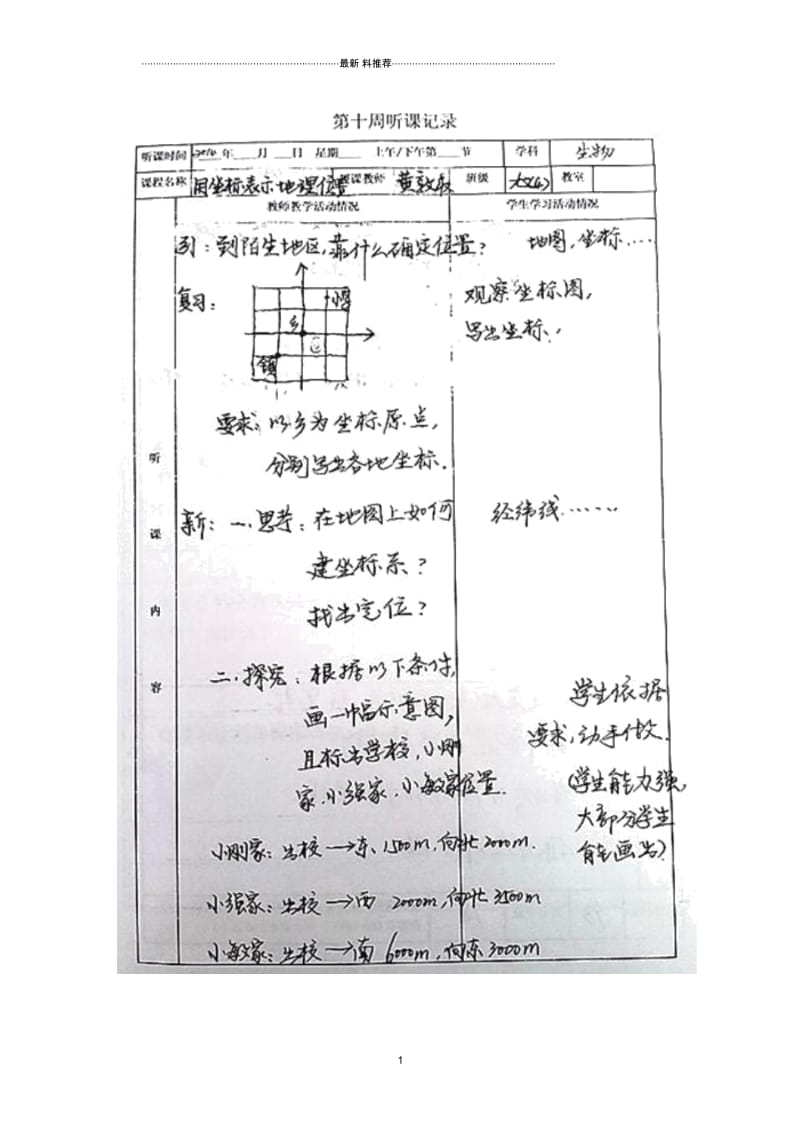 最新 料推荐
第十周听课记录
听课时间 年 月 日 星期 上午/下午第 节 学科 生物
课程名称 用坐标表示地理位置 授课教师 黄 班级 教室
教师教学活动情况 学生学习活动情况
到陌生地区,靠什么确定位置? 地图,坐标……
复习: 观察坐标图,
写出坐标.
乡
镇
要求:以乡为坐标原点,
分别写出各地坐标.
新:一.思考:在地图上如何 经纬线……
建坐标系?
找出定位?
二.探究:根据以下条件,
画一幅示意图,
且标出学校,小刚
家,小强家,小敏家位置.
学生依据
要求,动手做.
(学生能力强,
大部分学生
能画出)
小刚家:出校→东、1500m,向北2000m.
小强家:出校→西 2000m,向北3500m
小敏家:出校→南 6000m,向东3000m
听
课
内
容
1